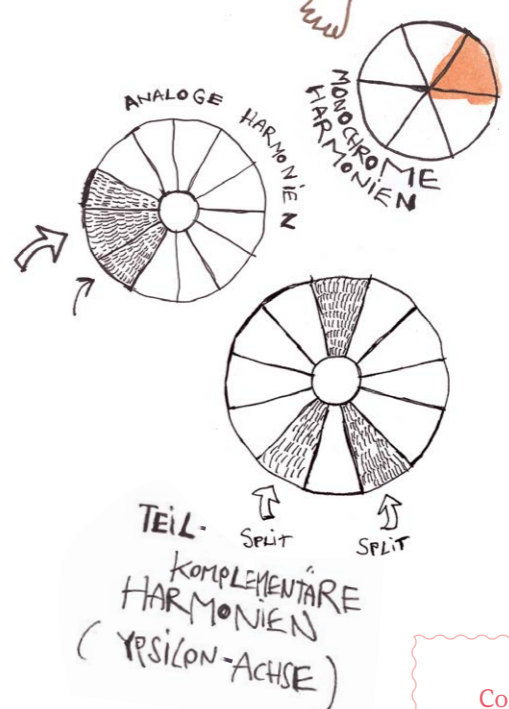 ANALOGE HARMONIEN
MONOCHROME
HARMONIEN
SPLIT
SPLIT
TEIL-
KOMPLEMENTÄRE
HARMONIEN
(YPSILON-ACHSE)
Co